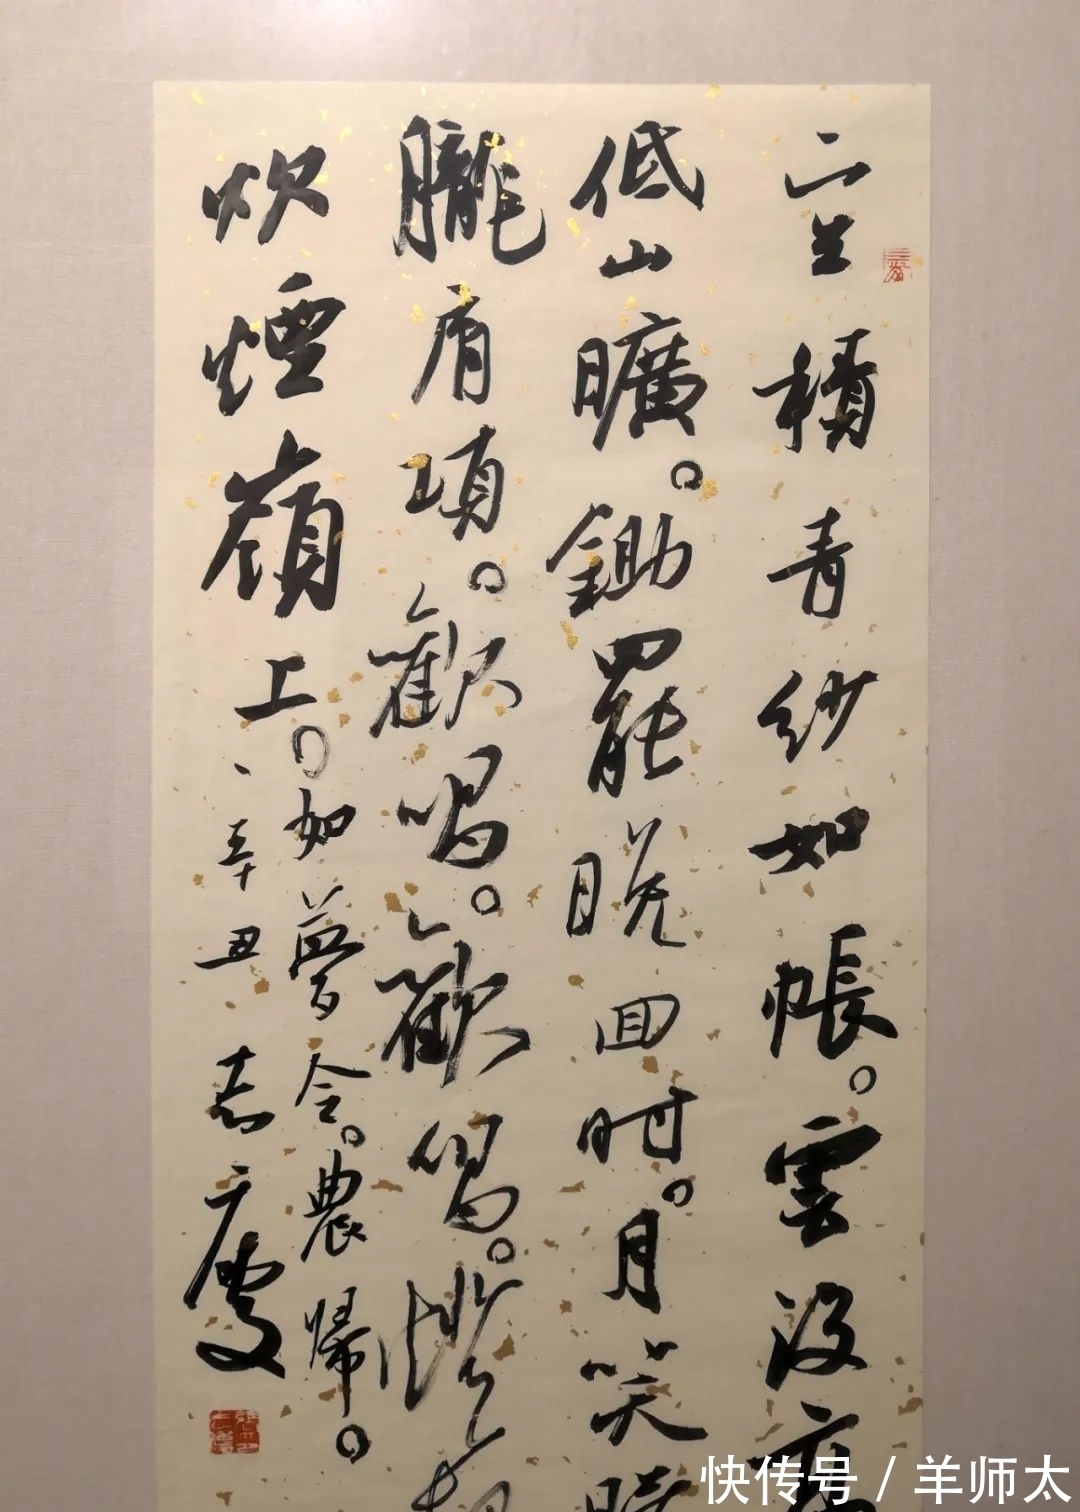 積青紗如帳。雲没
低山曠。鋤罷晚回时。月笑
朧肩項。歡唱。歡唱。
炊煙嶺上。
如夢令。農歸。
辛丑志
快传号 / 羊师太